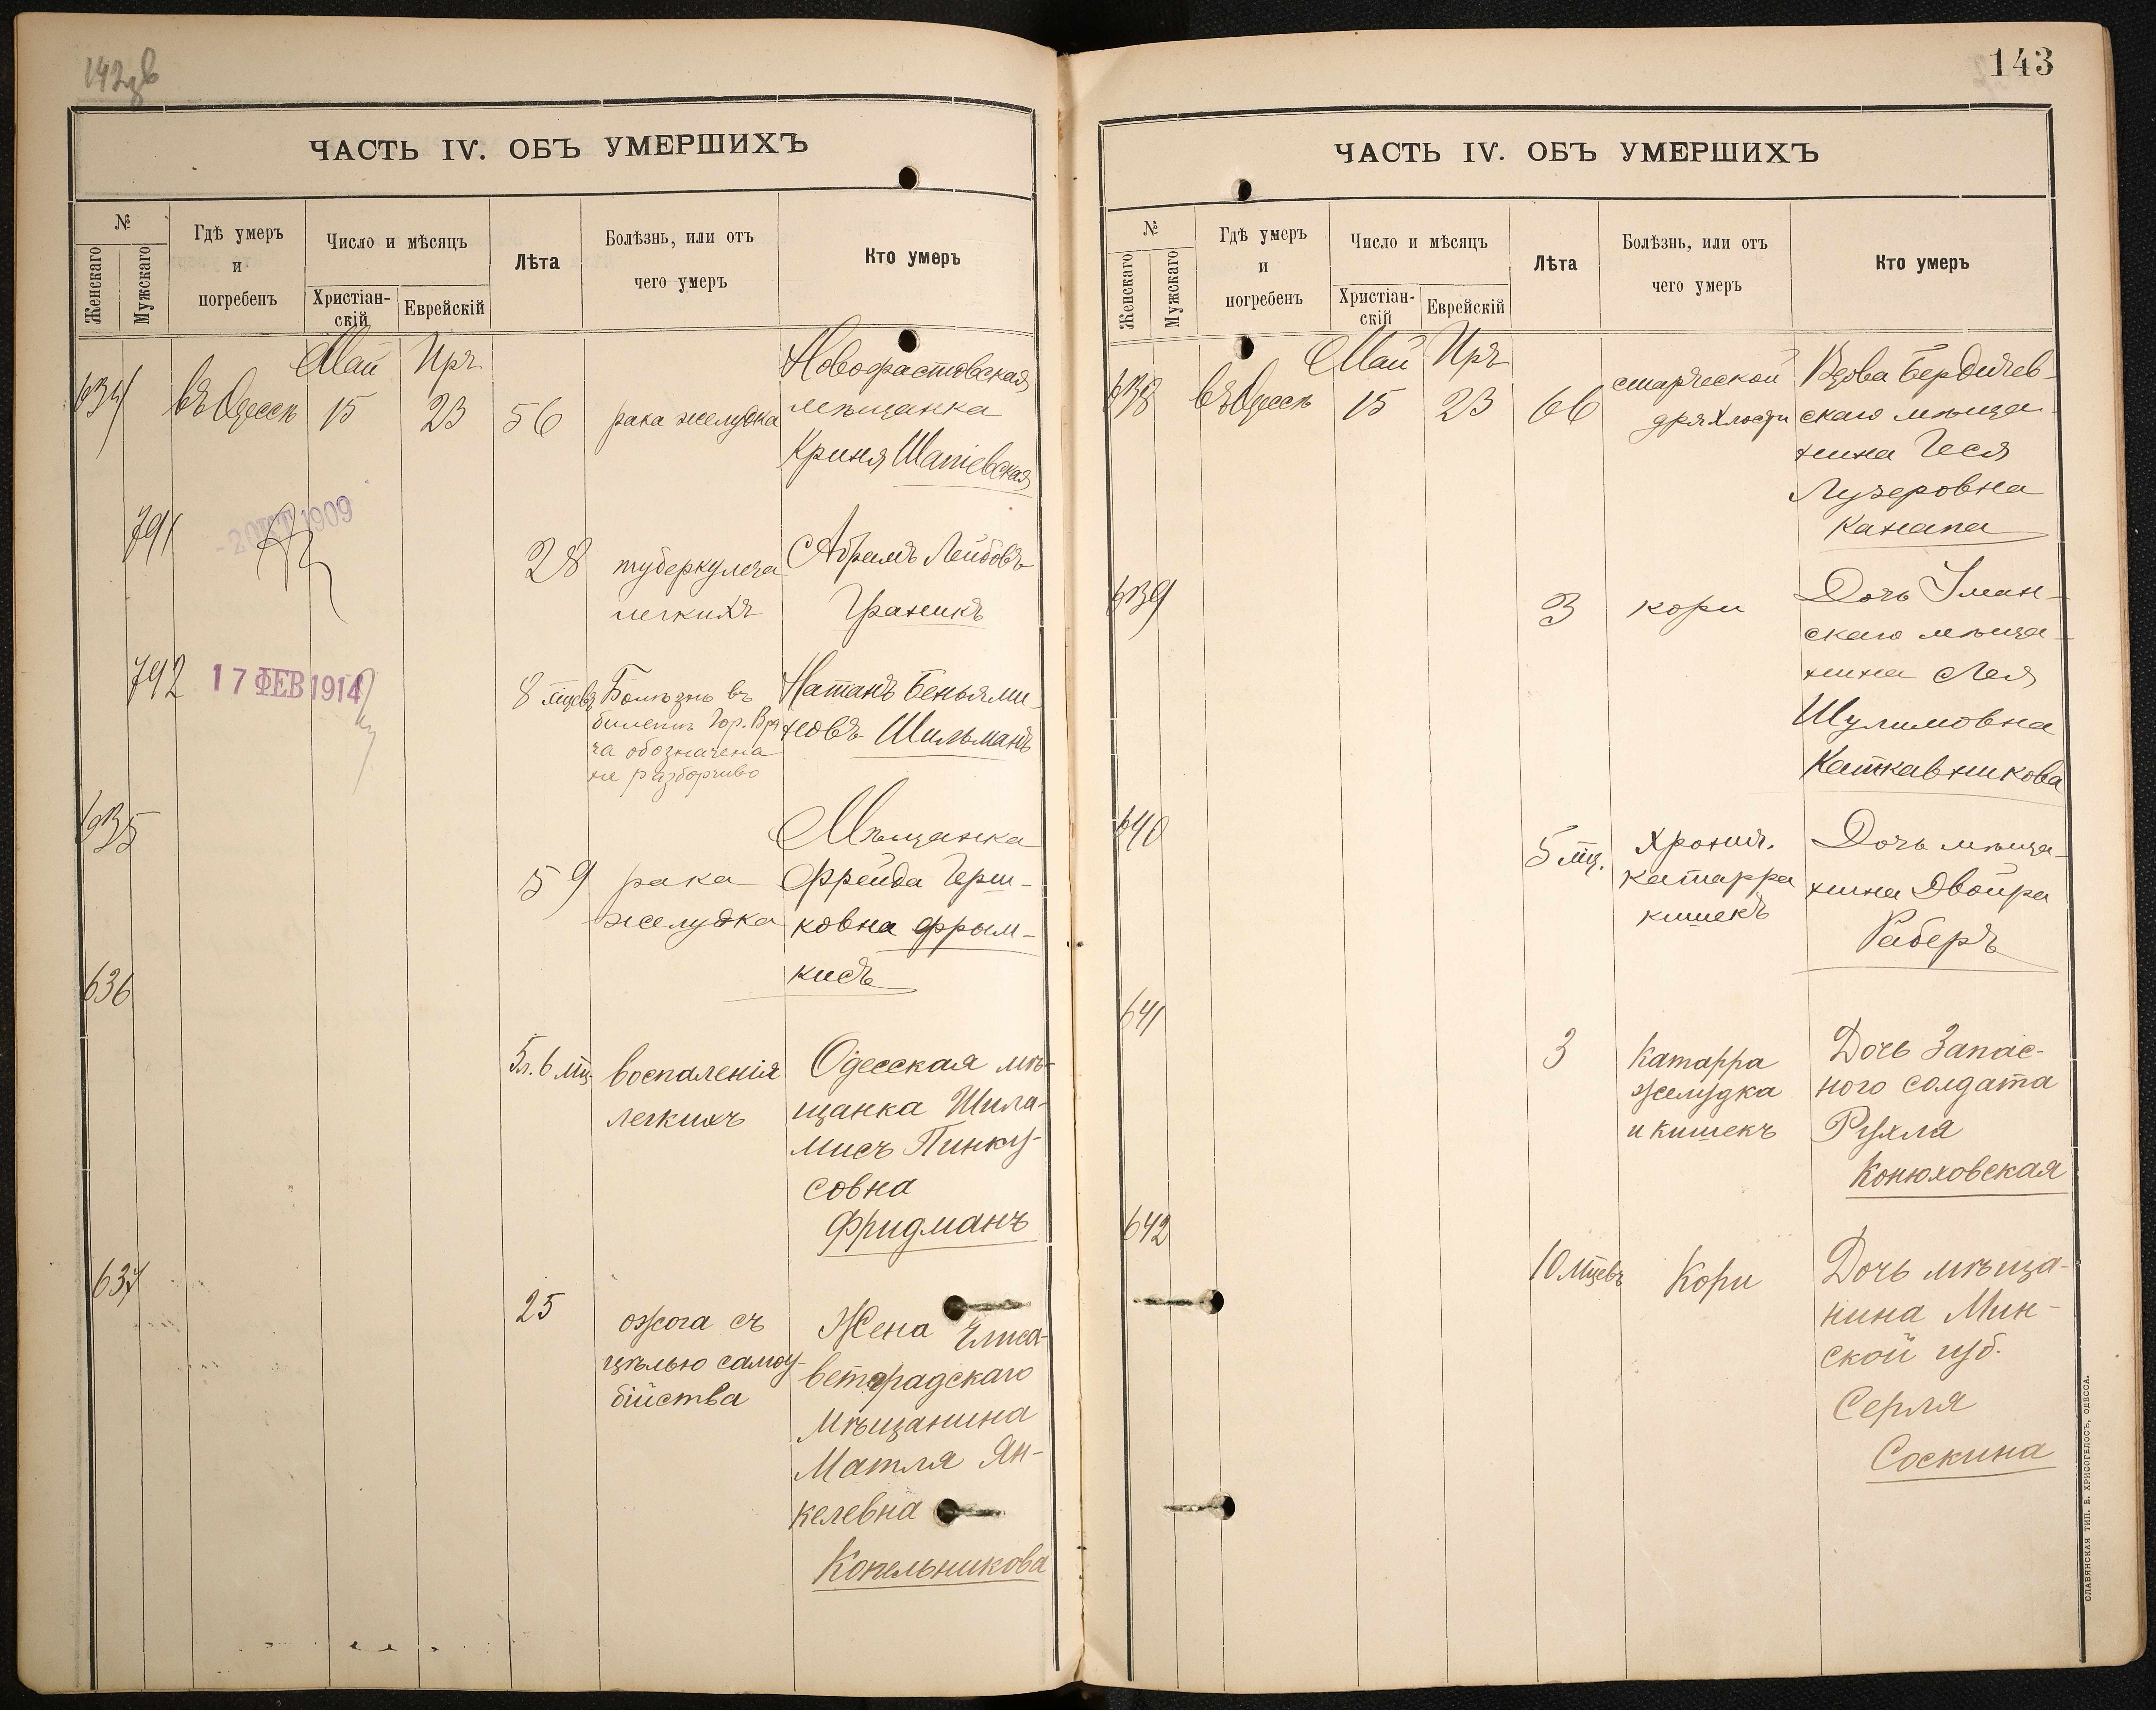 142об
ЧАСТЬ IV. ОБЪ УМЕРШИХЪ
№
Женскаго
Мужскаго
Гдѣ умеръ
и
погребенъ
Число и мѣсяцъ
Христіан-
скій
Еврейскій
Лѣта
Болѣзнь, или отъ
чего умеръ
Кто умеръ
Май Іяръ
634 въ Одессѣ 15 23 56 рака желудка
Новофастовская
мѣщанка
Криня Шапіевская
791
-2 ОКТ 1909
28
туберкулеза
легкихъ
Абрамъ Лейбовъ
Граникъ
792
17 ФЕВ 1914
8 мцевъ
Болѣзнь въ
билетѣ Гор. Вра
ча обозначена
не разборчиво
Натанъ Беньями-
новъ Шильманъ
635
59
рака
желудка
Мѣщанка
Фрейда Герш-
ковна Фрым-
кисъ
636
5 л. 6 мц.
воспаленія
легкихъ
Одесская мѣ-
щанка Шула-
мисъ Пинку-
совна
Фридманъ
637
25
ожога съ
цѣлью самоу-
бійства
Жена Елиса-
ветградскаго
мѣщанина
Матля Ян-
келевна
Копельникова
143
ЧАСТЬ IV. ОБЪ УМЕРШИХЪ
№
Женскаго
Мужскаго
Гдѣ умеръ
и
погребенъ
Число и мѣсяцъ
Христіан-
скій
Еврейскій
Лѣта
Болѣзнь, или отъ
чего умеръ
Кто умеръ
Май Іяръ
638 въ Одессѣ 15 23 66
старческой
дряхлости
Вдова Бердичев-
скаго мѣща-
нина Геся
Лузеровна
Канапа
639
3
кори
Дочь Уман-
скаго мѣща-
нина Лея
Шулимовна
Каткавникова
640
5 мц.
хронич.
катарра
кишекъ
Дочь мѣща-
нина Двойра
Раберъ
641
3
Катарра
желудка
и кишекъ
Дочь Запас-
ного солдата
Рухля
Конюховская
642
10 мцевъ
Кори
Дочь мѣща-
нина Мин-
ской губ.
Серля
Соскина
СЛАВЯНСКАЯ ТИП. Е. ХРИСОГЕЛОСЪ, ОДЕССА.